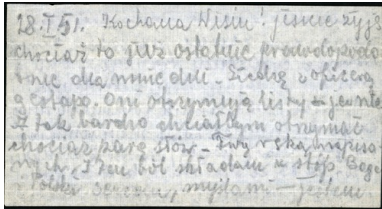 28.I 51. Kochana Wisiu! jeszcze żyję
chociaż to już ostatnie prawdopodo
bnie dla mnie dni. Siedzę z oficerą
gestapo. Oni otrzymują listy – ja nie
A tak bardzo chciałbym otrzymać
chociaż parę słów – Twą ręką napisa
nych. I ten ból składam u stóp Boga
Polski myślami – jestem